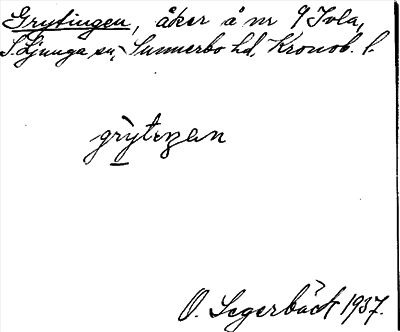 Grytingen, åker å nr 9 Tvla,
S. Ljunga sn, Sunnerbo hd, Kronob. l.
grytiŋən
O. Segerbäck 1937.